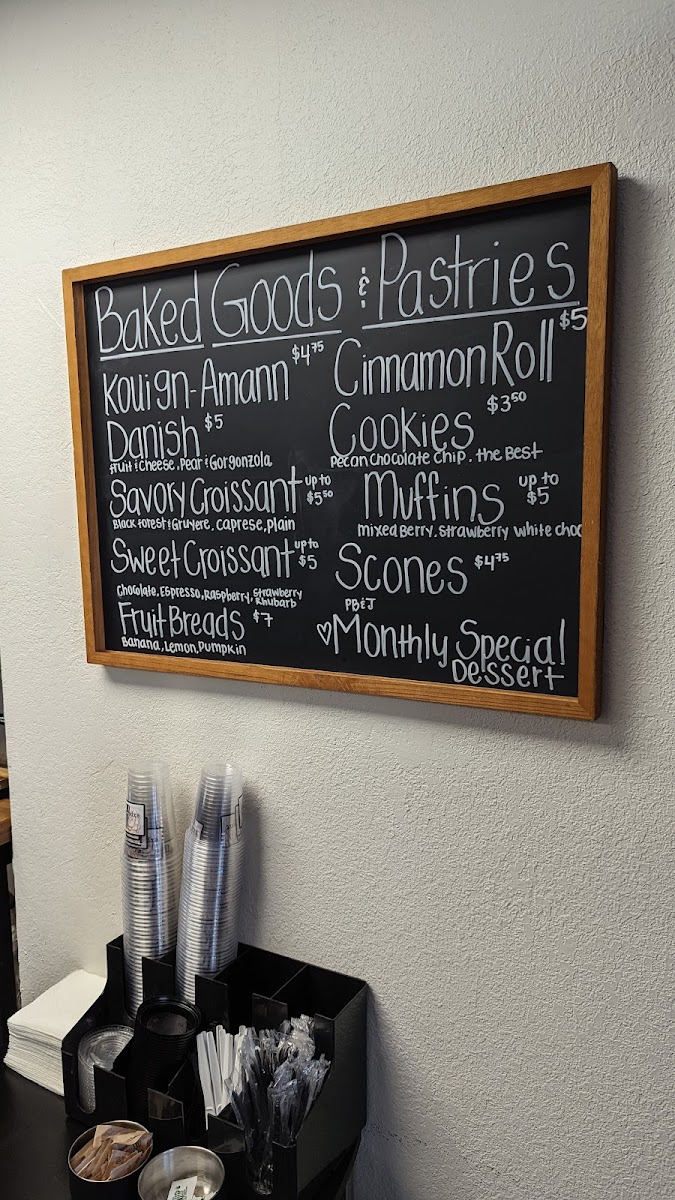 Baked Goods & Pastries
Kouign-Amann $4.75
Danish $5
Fruit & Cheese, Pear & Gorgonzola
Savory Croissant up to $5.50
Black forest & Gruyere, Caprese, Plain
Sweet Croissant up to $5
Chocolate, Espresso, Raspberry, Strawberry Rhubarb
Fruit Breads $7
Banana, Lemon, Pumpkin
Cinnamon Roll $5
Cookies $3.50
Pecan Chocolate Chip. the Best
Muffins up to $5
Mixed Berry. Strawberry White choc
Scones $4.75
PB&J
♡Monthly Special
Dessert